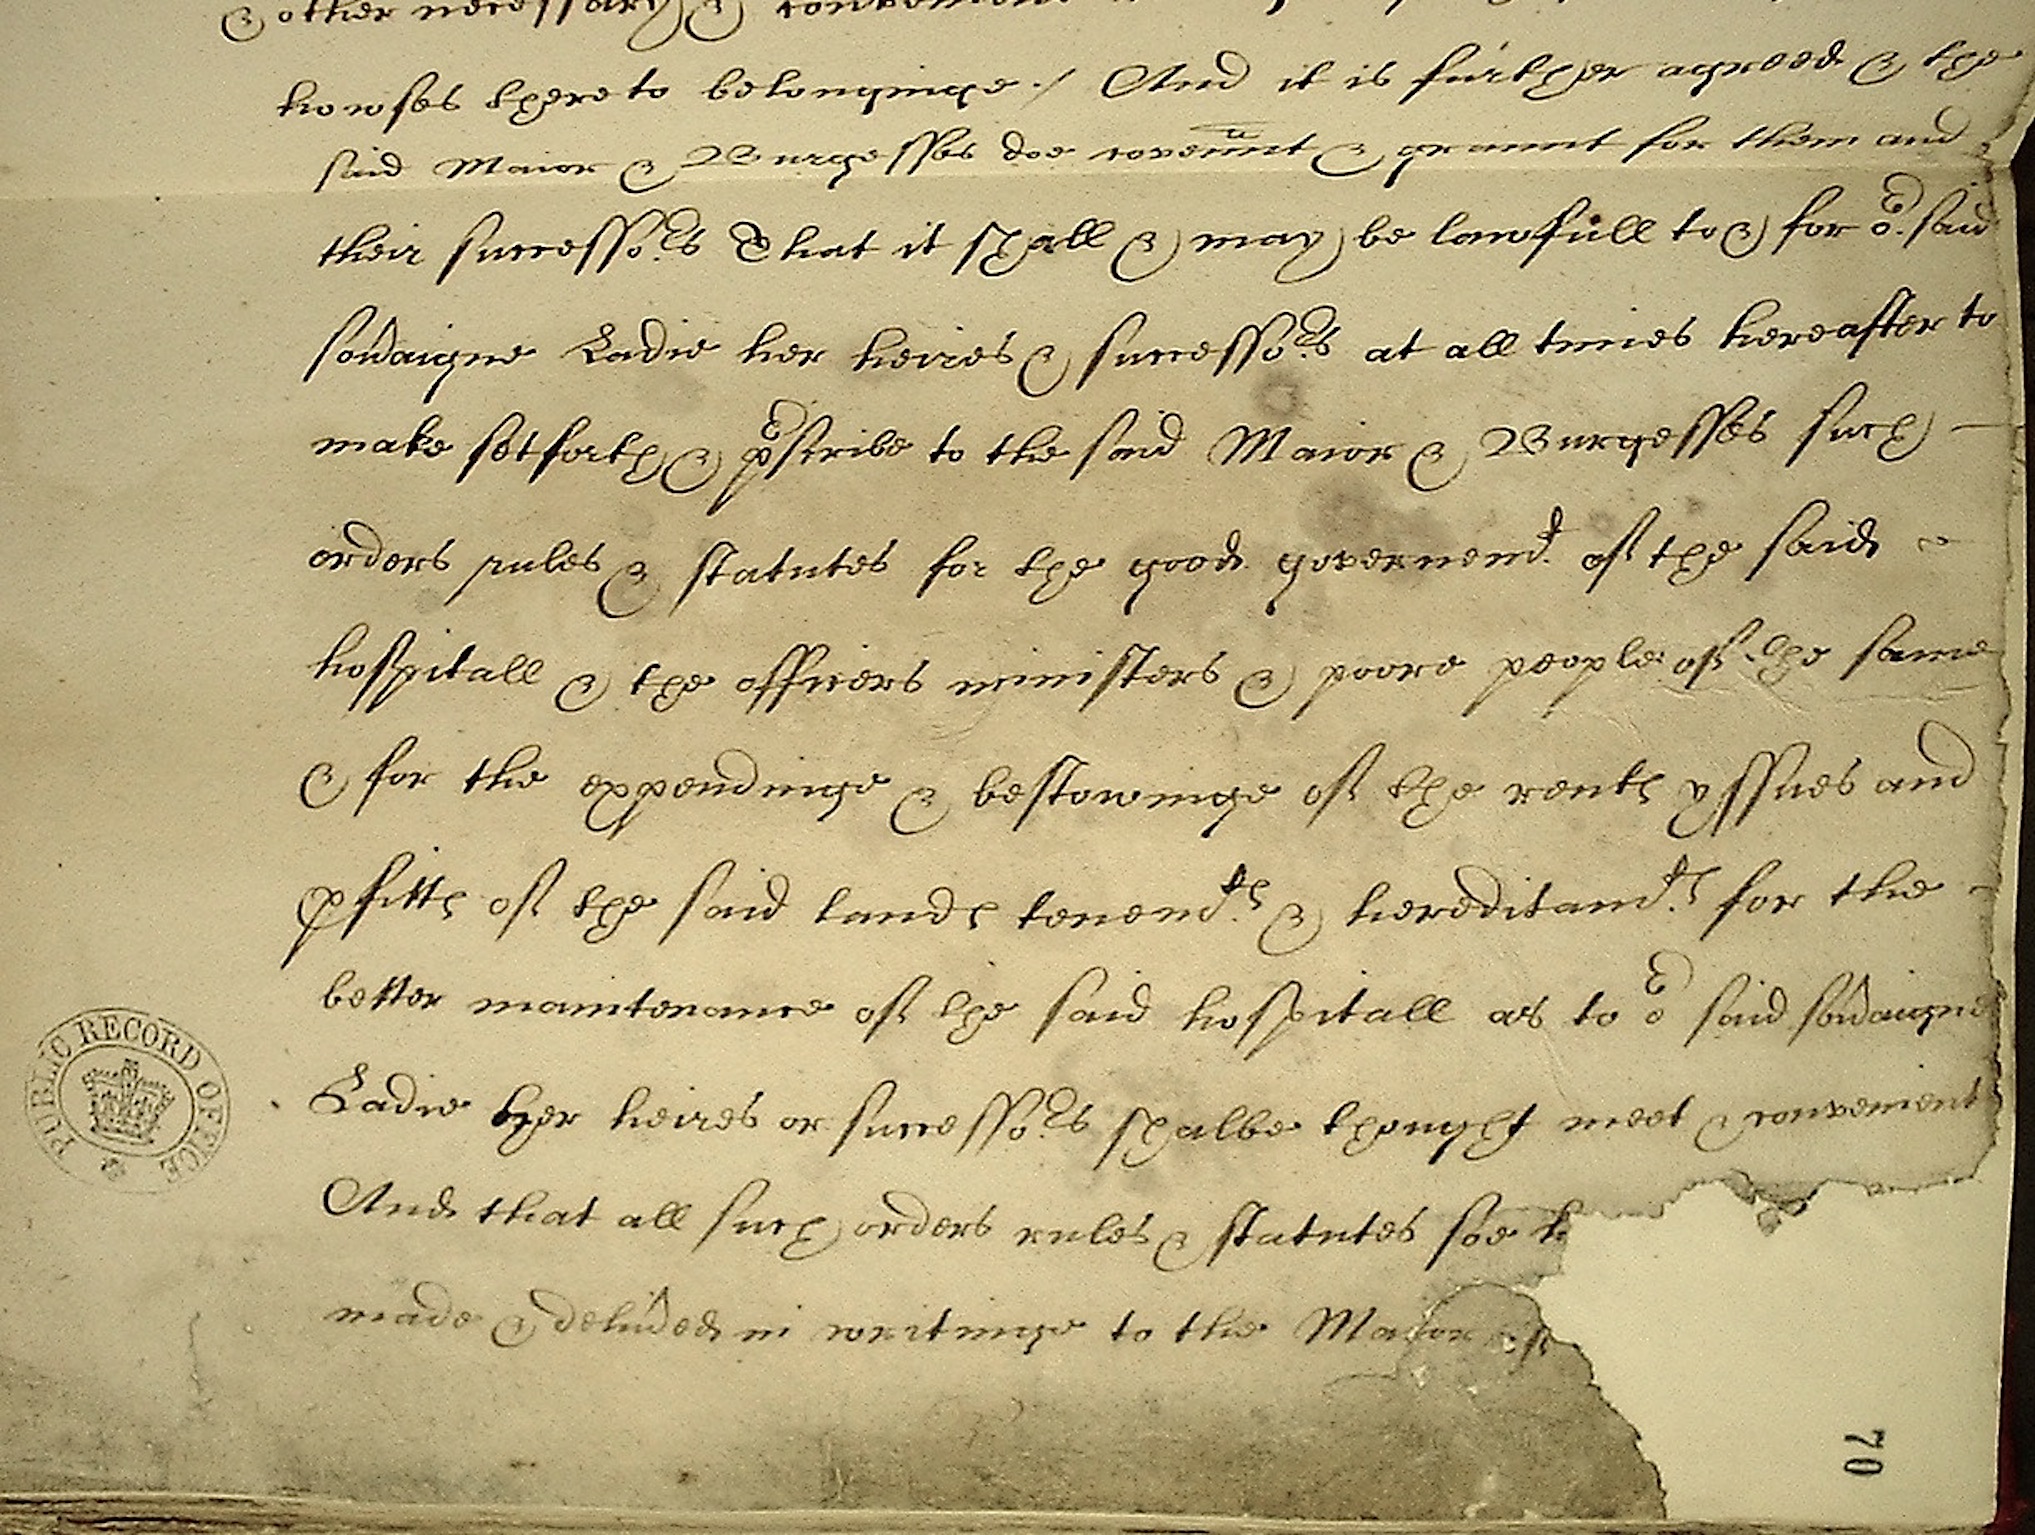 & other necessary & convenient
howses thereto belonginge ./ And it is further agreed & the
said Maior & Burgesses doe covennt & graunt for them and
their successors That it shall & may be lawfull to & for or said
sovaigne Ladie her heires & successors at all times hereafter to
make setforth & pscribe to the said Maior & Burgesses such
orders rules & statutes for the good governemt of the said
hospitall & the officers ministers & poore people of the same
& for the expendinge & bestowinge of the rents yssues and
pfitts of the said lands tenemts & hereditamts for the
better maintenance of the said hospitall as to or said sovaigne
Ladie her heires or successors shalbe thought meet & convenient
And that all such orders rules & statutes soe
made & delived in writinge to the Maior
PUBLIC RECORD OFFICE
70